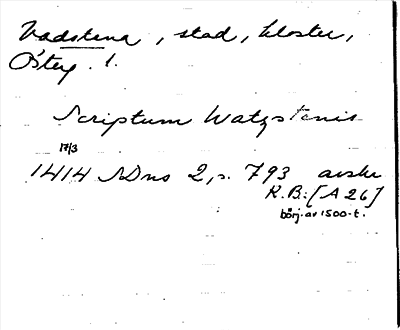 Vadstena, stad, kloster,
Östg. l.
Scriptum Watzstenis
17/3
1414 SDns 2, s. 793 avskr
K.B. [A 26]
börj. av 1500-t.